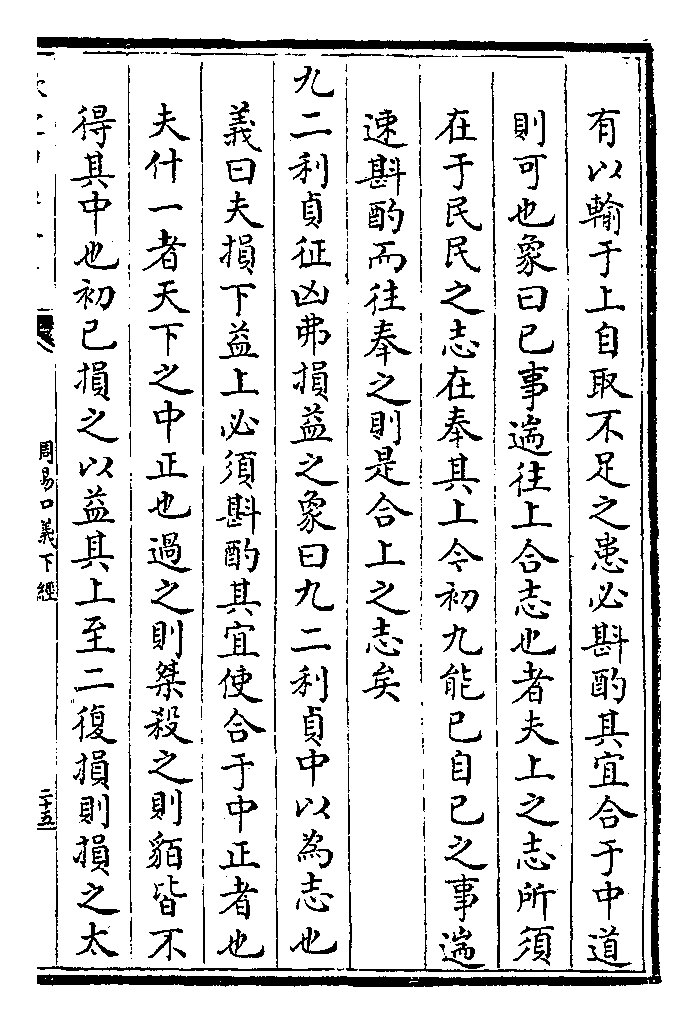 有以輸于上自取不足之患必斟酌其宜合于中道
則可也象曰已事遄往上合志也者夫上之志所須
在于民民之志在奉其上今初九能已自已之事遄
速斟酌而往奉之則是合上之志矣
九二利貞征凶弗損益之象曰九二利貞中以為志也
義曰夫損下益上必須斟酌其宜使合于中正者也
夫什一者天下之中正也過之則桀殺之則貊皆不
得其中也初已損之以益其上至二復損則損之太
周易口義下經
二十五